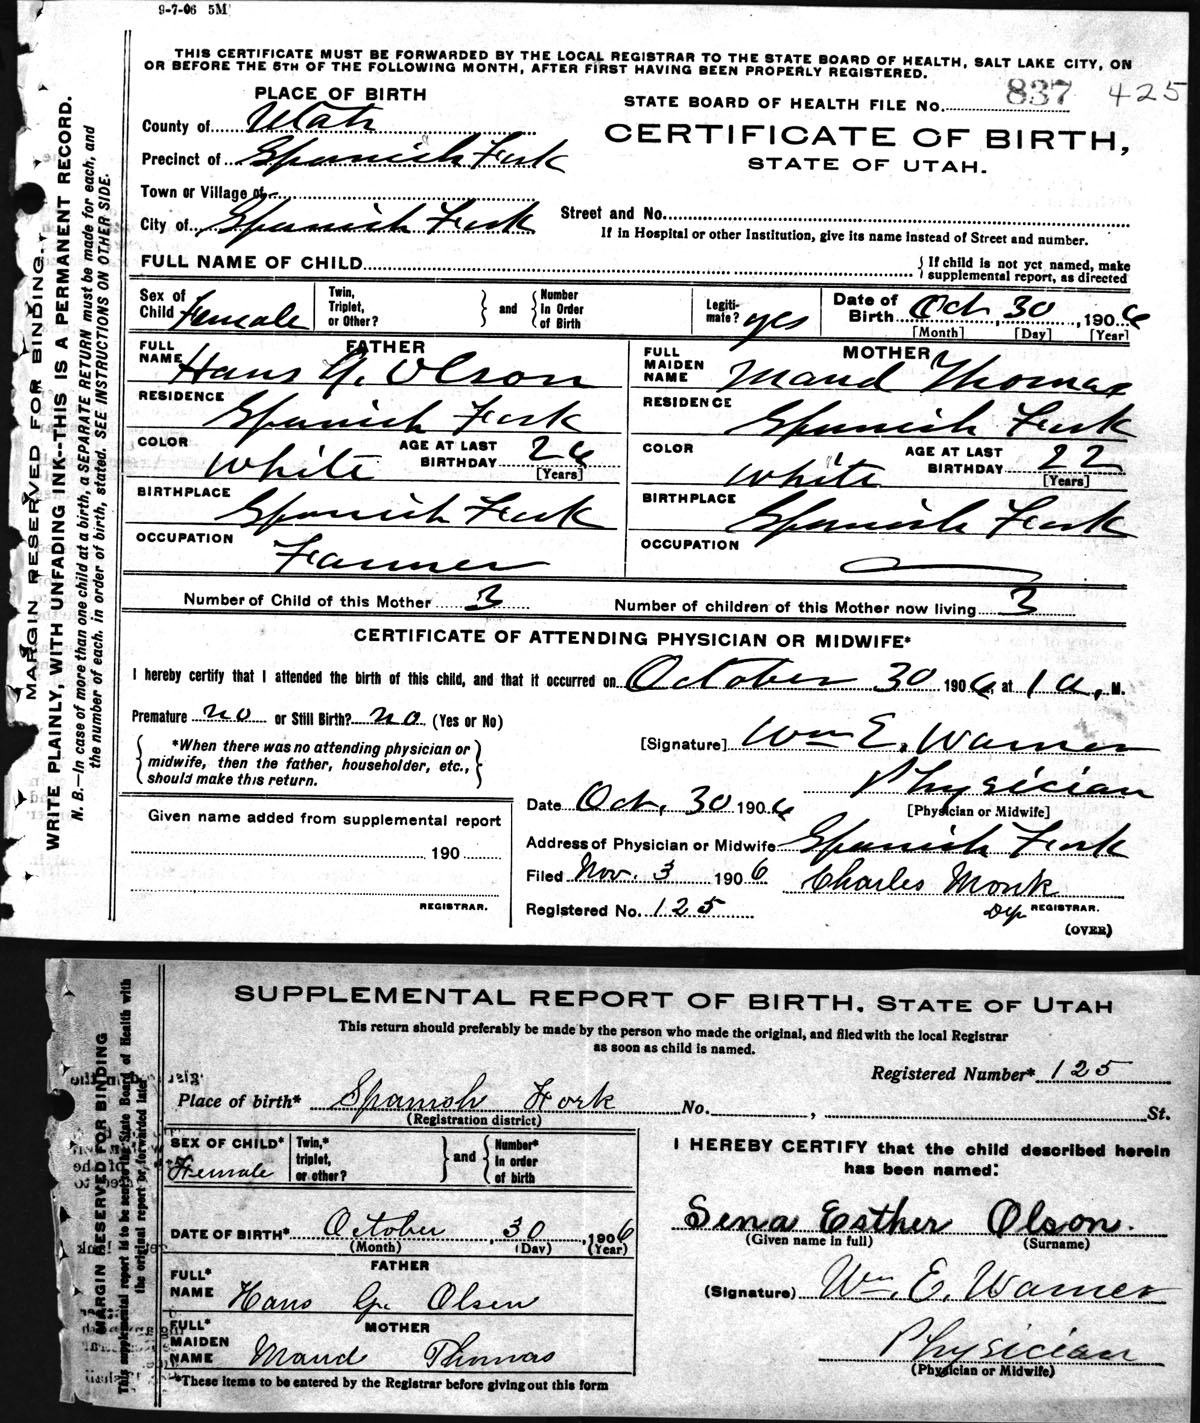 9-7-06 5M
THIS CERTIFICATE MUST BE FORWARDED BY THE LOCAL REGISTRAR TO THE STATE BOARD OF HEALTH, SALT LAKE CITY, ON
OR BEFORE THE 5TH OF THE FOLLOWING MONTH, AFTER FIRST HAVING BEEN PROPERLY REGISTERED.
PLACE OF BIRTH
STATE BOARD OF HEALTH FILE No. 837 425
County of Utah
CERTIFICATE OF BIRTH,
STATE OF UTAH.
Precinct of Spanish Fork
Town or Village of
City of Spanish Fork
Street and No.
If in Hospital or other Institution, give its name instead of Street and number.
FULL NAME OF CHILD
If child is not yet named, make
supplemental report, as directed
Sex of Child Female
Twin, Triplet, or Other?
and
Number In Order of Birth
Legiti-mate? yes
Date of Birth Oct, 30, 1906
[Month] [Day] [Year]
FATHER
FULL NAME Hans G. Olson
RESIDENCE Spanish Fork
COLOR White
AGE AT LAST BIRTHDAY 26 [Years]
BIRTHPLACE Spanish Fork
OCCUPATION Farmer
MOTHER
FULL MAIDEN NAME Maud Thomas
RESIDENCE Spanish Fork
COLOR White
AGE AT LAST BIRTHDAY 22 [Years]
BIRTHPLACE Spanish Fork
OCCUPATION
Number of Child of this Mother 3
Number of children of this Mother now living 3
CERTIFICATE OF ATTENDING PHYSICIAN OR MIDWIFE*
I hereby certify that I attended the birth of this child, and that it occurred on October 30 1906, at 1 a, M.
Premature no or Still Birth? no (Yes or No)
*When there was no attending physician or
midwife, then the father, householder, etc.,
should make this return.
[Signature] Wm E. Warner
Physician
[Physician or Midwife]
Date Oct, 30 1906
Given name added from supplemental report
190
REGISTRAR.
Address of Physician or Midwife Spanish Fork
Filed Nov. 3 1906 Charles Monk
Registered No. 125
Dep REGISTRAR.
(OVER)
MARGIN RESERVED FOR BINDING.
WRITE PLAINLY, WITH UNFADING INK--THIS IS A PERMANENT RECORD.
N. B.—In case of more than one child at a birth, a SEPARATE RETURN must be made for each, and
the number of each, in order of birth, stated. SEE INSTRUCTIONS ON OTHER SIDE.
SUPPLEMENTAL REPORT OF BIRTH, STATE OF UTAH
This return should preferably be made by the person who made the original, and filed with the local Registrar
as soon as child is named.
Registered Number* 125
Place of birth* Spanish Fork No. , St.
(Registration district)
SEX OF CHILD* Female
Twin,* triplet, or other?
and
Number* in order of birth
DATE OF BIRTH* October, 30, 1906
(Month) (Day) (Year)
FATHER
FULL* NAME Hans G. Olsen
MOTHER
FULL* MAIDEN NAME Maud Thomas
*These items to be entered by the Registrar before giving out this form
I HEREBY CERTIFY that the child described herein
has been named:
Sena Esther Olson.
(Given name in full) (Surname)
(Signature) Wm. E. Warner
Physician
(Physician or Midwife)
MARGIN RESERVED FOR BINDING
This supplemental report is to be sent to the State Board of Health with
the original report or forwarded later